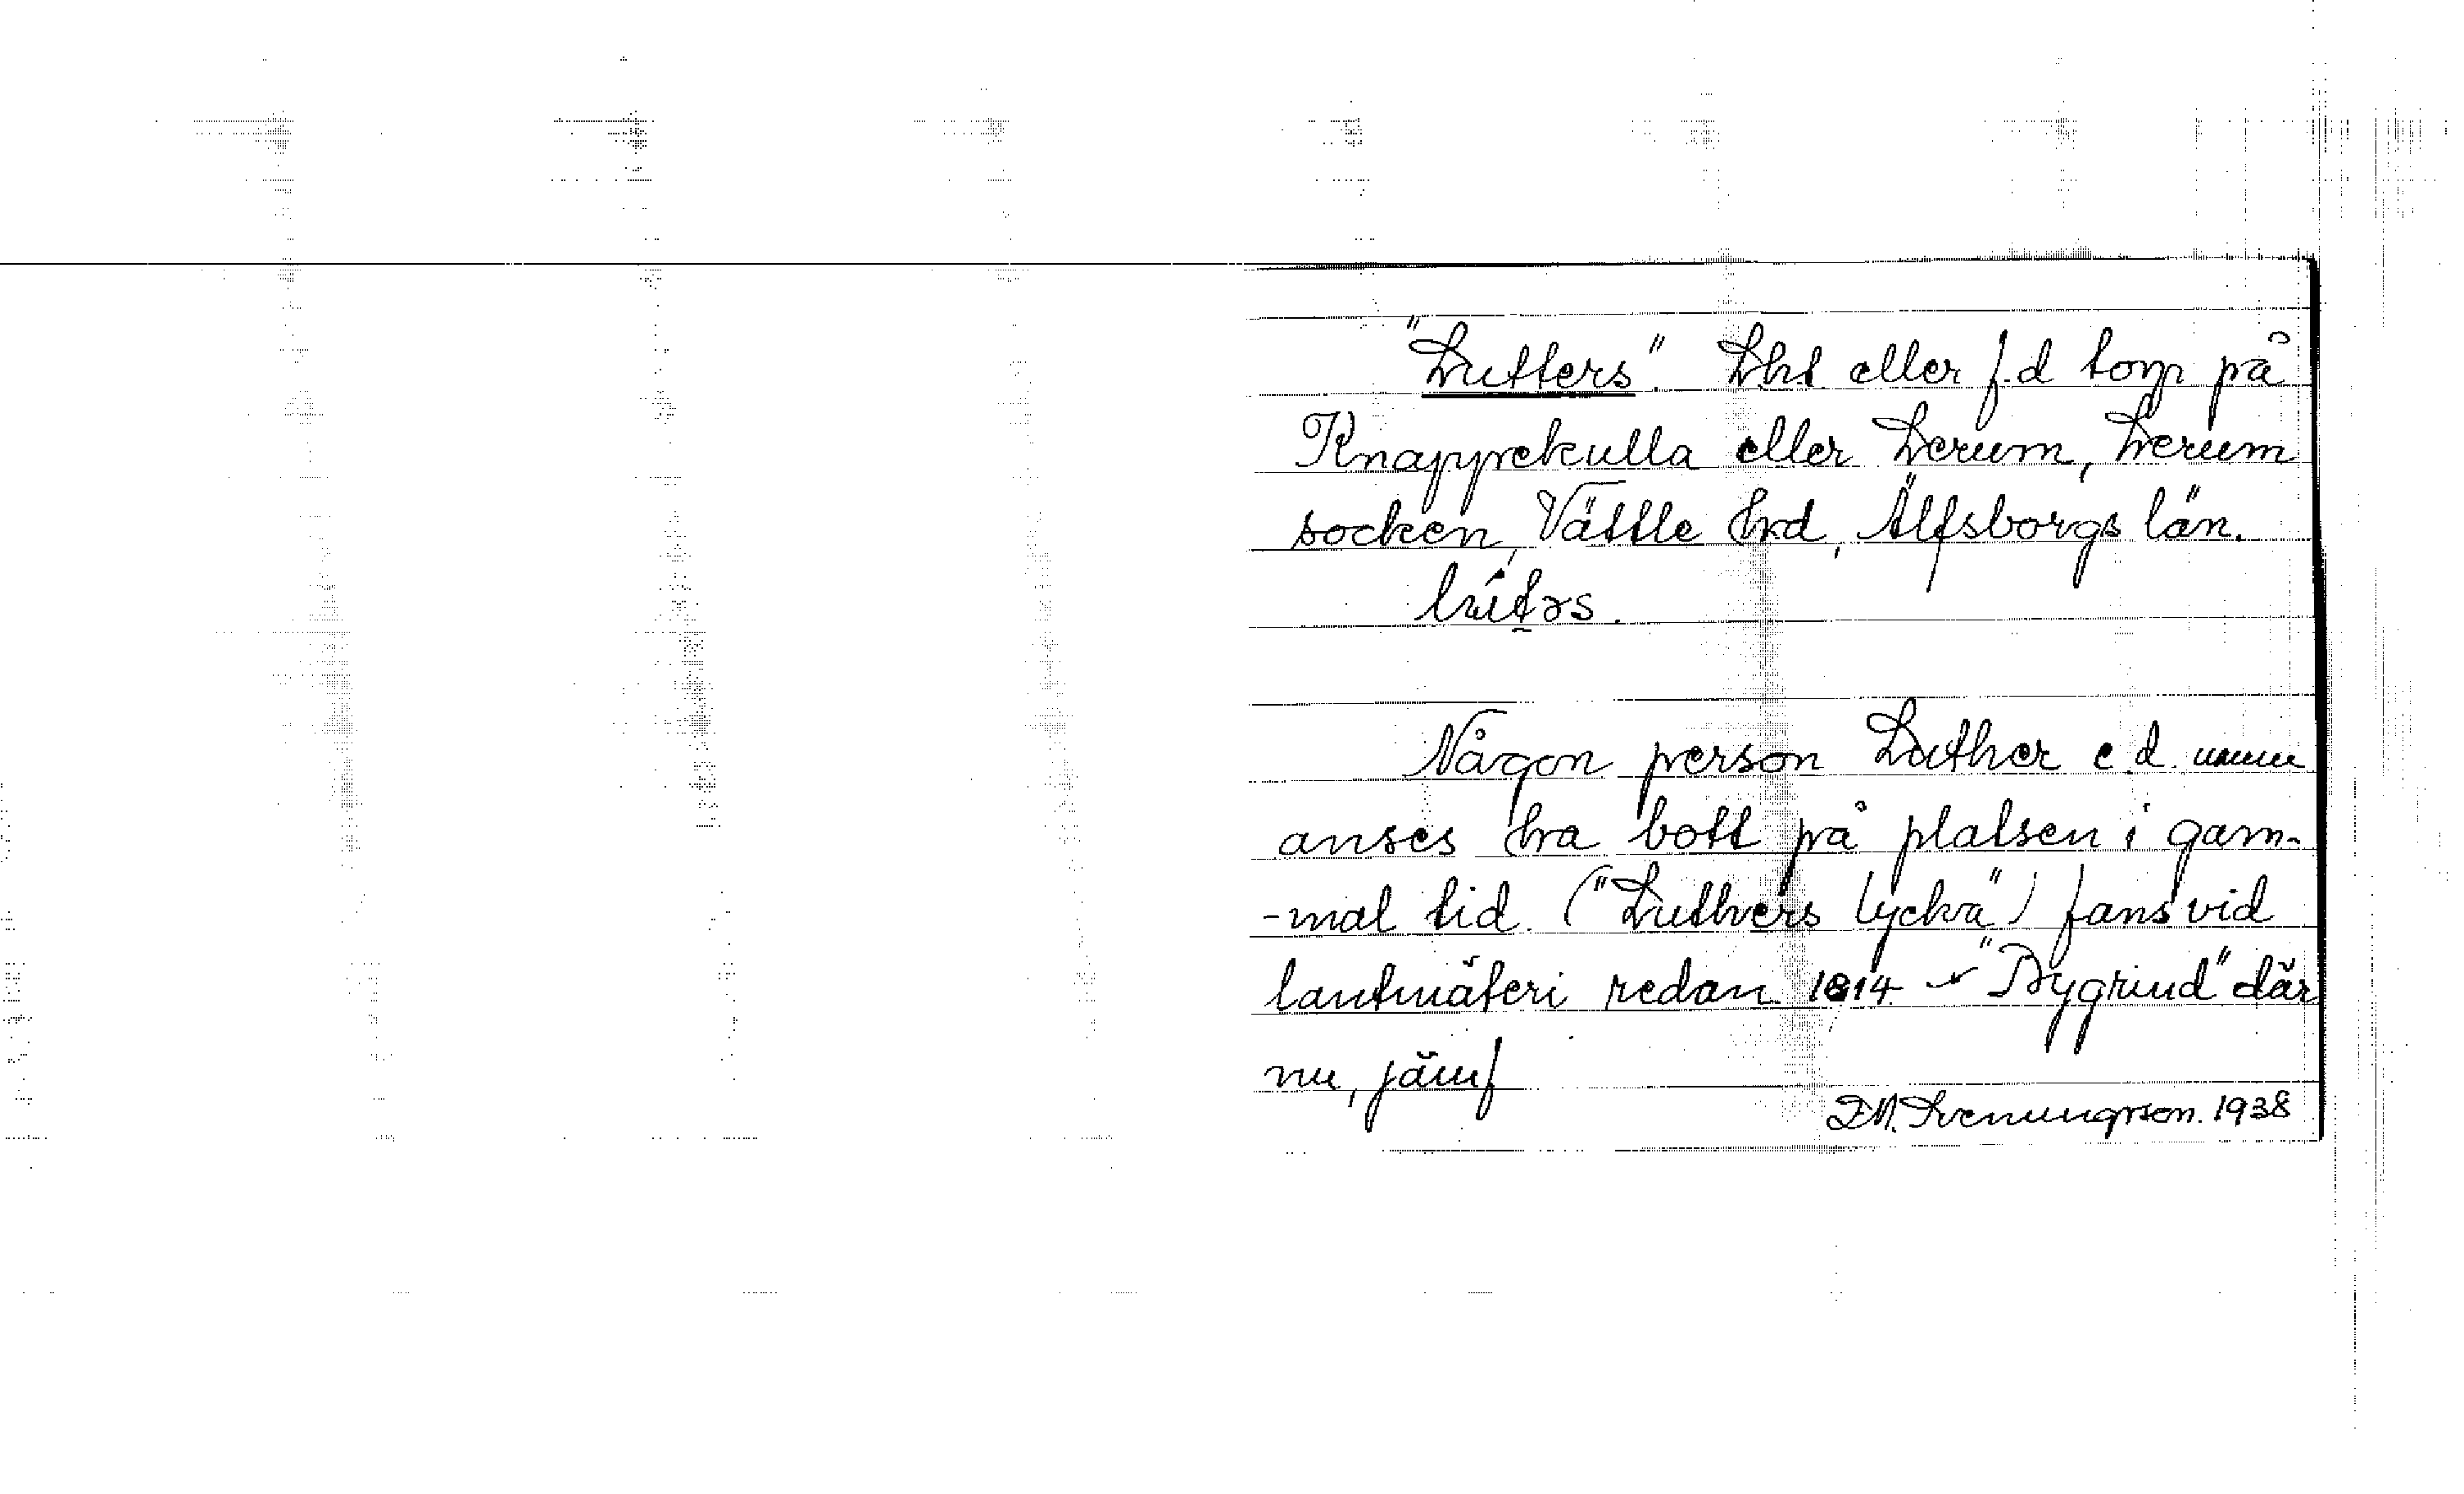 "Lutters". Lht eller f.d torp på
Knapprekulla eller Lerum, Lerum
socken, Vättle hrd, Älfsborgs län.
Någon person Luther e.d. namn
anses ha bott på platsen i gam-
-mal tid. ("Luthers lycka") fans vid
lantmäteri redan 1814 "Bygrind" där
nu, jämf
1938